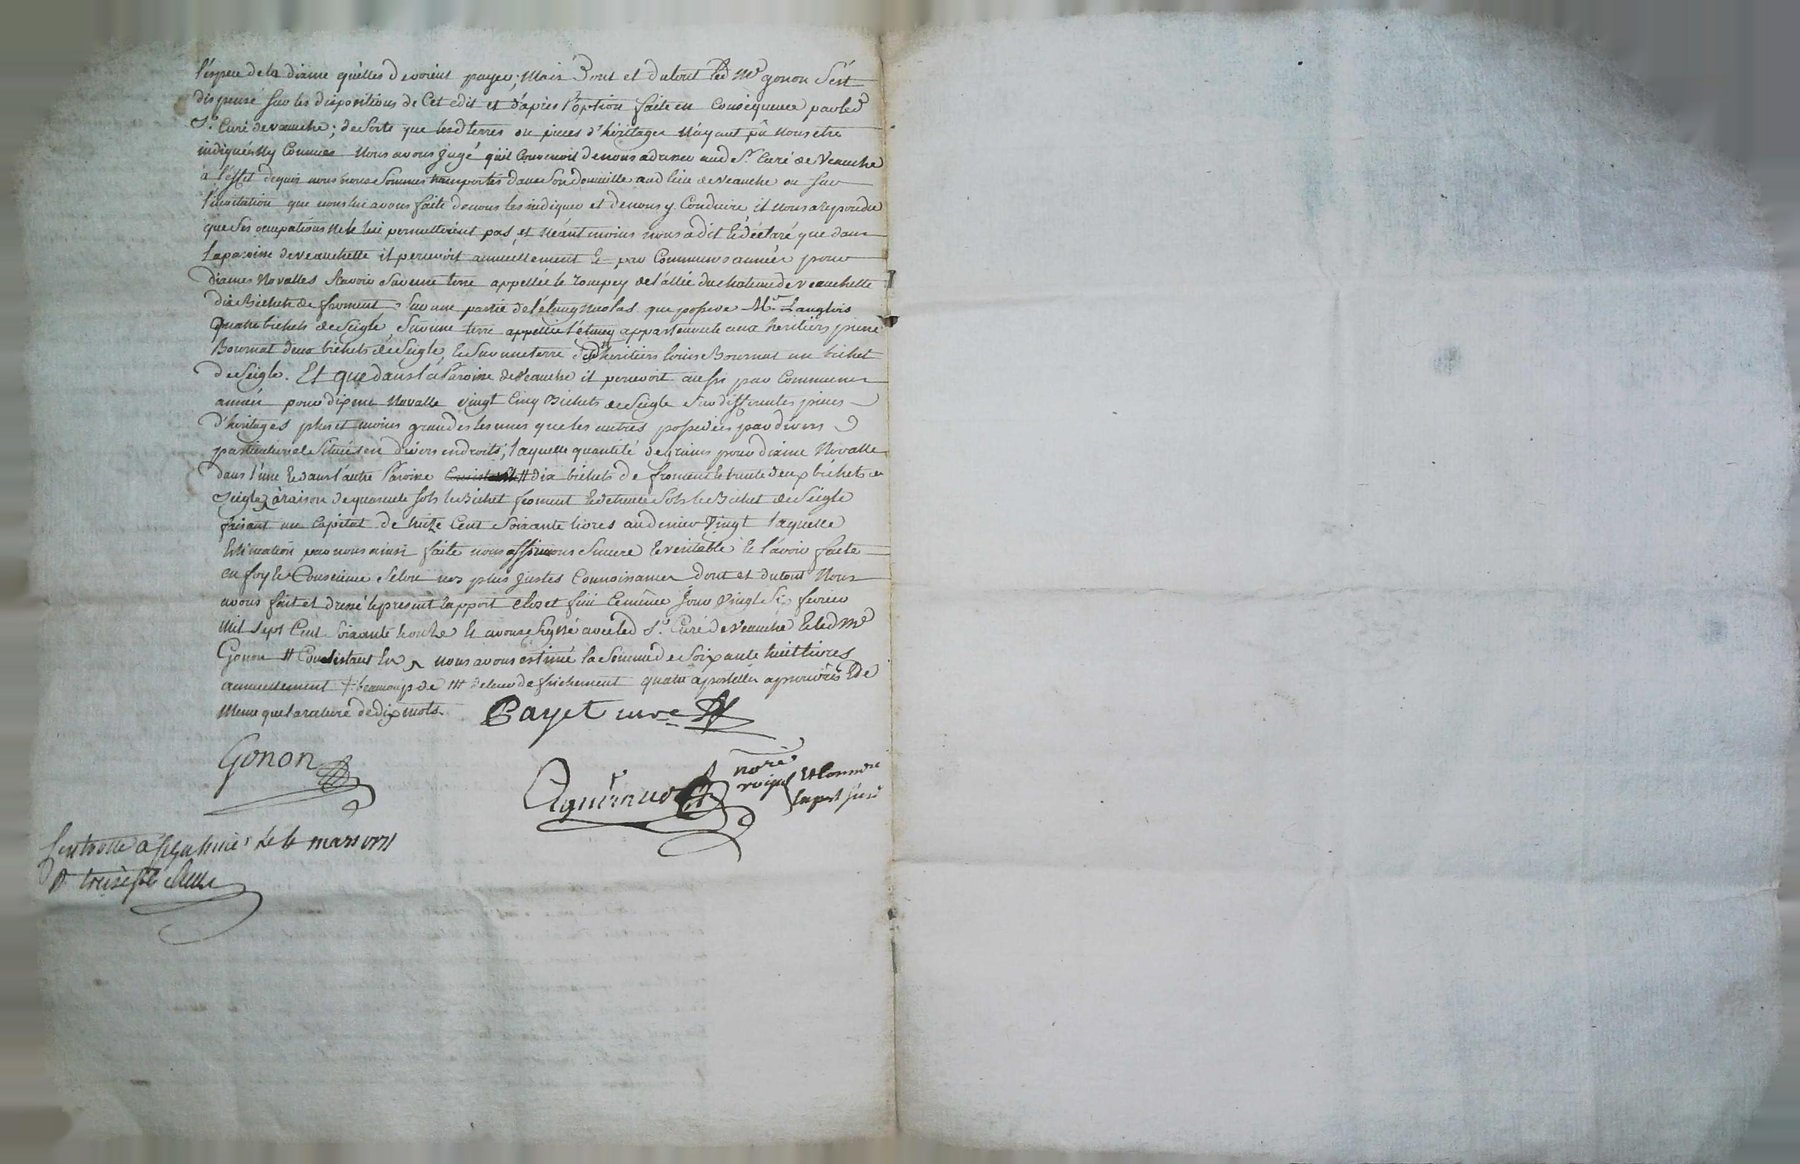 l'espece de la dixme qu'elles devoient payer; Mais Dont et du tout led Me gonon s'est
dispensé sur les dispositions de Cet edit et d'après l'option faite en Consequence par led
Sr. Curé de veauche; de sorte que lesd terres ou pieces d'héritages N'ayant pû nous etre
indiquées Ny Connues Nous avons jugé qu'il Convenoit de nous adresser aud Sr. Curé de Veauche
à l'effet de quoi nous nous sommes transportés dans son domicille aud lieu de veauche ou sur
l'invitation que nous lui avons faite de nous les indiquer et de nous y Conduire il nous a repondu
que ses ocupations Ne le lui permettoient pas, et néantmoins nous a dit & déclaré que dans
la paroisse de veauchette il percevoit annuellement & par Communes années pour
dixmes Novalles Scavoir Sur une terre appellée le de l'allée du chateau de veauchette
dix Bichets de froment, Sur une partie de l'étang Nicolas que possede Mr. Langlois
quatre bichets de Seigle, Sur une terre appellée l'étang appartenante aux heritiers pierre
Bournat deux bichets de Seigle, & Sur une terre desd heritiers louis Bournat un bichet
de Seigle. Et que dans la Paroisse de Veauche il percevoit aussi par Communes
années pour dixme Novalle vingt Cinq Bichets de Seigle Sur differentes pieces
d'héritages plus et moins grandes les unes que les autres possedées par divers
particuliers & Situés en divers endroits; laquelle quantité de grains pour dixme Novalle
dans l'une & dans l'autre Paroisse # dix bichets de froment & trente deux bichets de
Seigle à raison de quarante Sols le Bichet froment & de trente Sols le Bichet de Seigle
faisant un Capital de treize Cent Soixante livres au denier Vingt laquelle
Estimation par nous ainsi faite nous affirmons Sincere & veritable & l'avoir faite
en foy & Conscience Selon nos plus justes Connoissances Dont et du tout Nous
avons fait et dressé le present rapport Clos et fini Cemême Jour Vingt Six fevrier
Mil Sept Cent Soixante & onze & avons Signé avec led Sr. Curé de Veauche & led Me
Gonon # Consistant En nous avons estimé la Somme de Soixante huit livres
annuellement + beaucoup de # de leur defrichement quatre apostilles aprouvées & de
Meme que la rature de dix mots.
Payet curé
Gonon
nore
royal & Comm re
Controllé à le 4 mars 1771
R treise sols